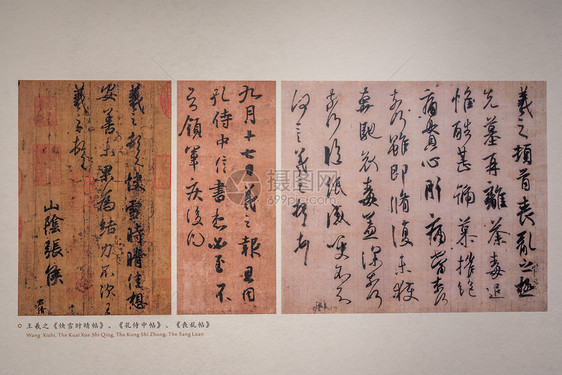 羲之頓首快雪時晴佳想
安善未果為結力不次王
羲之頓首
山陰張侯
九月十七日羲之報且因
孔侍中信書想必至不
知領軍疾後問
羲之頓首喪亂之極
先墓再離荼毒追
惟酷甚號慕摧絕
痛貫心肝痛當奈何
奈何雖即脩復未獲
奔馳哀毒益深奈何
奈何臨紙感哽不知
何言羲之頓首頓首
王羲之《快雪时晴帖》、《孔侍中帖》、《丧乱帖》
Wang Xizhi, The Kuai Xue Shi Qing, The Kong Shi Zhong, The Sang Luan
摄图网